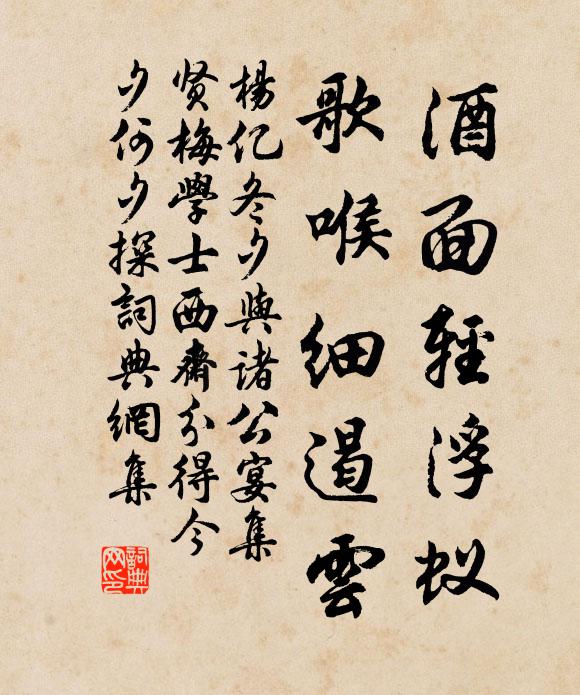 酒面輕浮蚁
歌喉细遏雲
楊亿冬夕與诸公宴集
贤梅學士西齋分得今
夕何夕探詞典網集
詞典网印